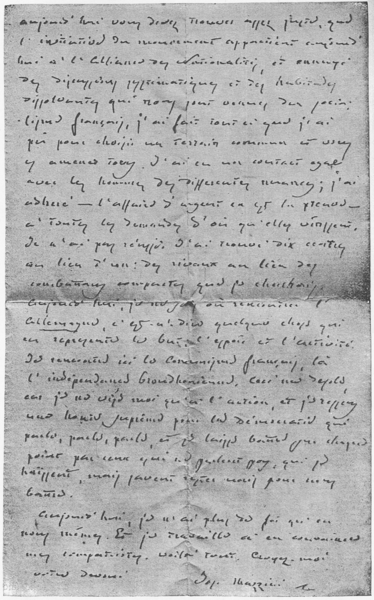 aujourd'hui vous devez trouver assez juste, que
l'initiative du mouvement appartient aujourd'
hui à l'Alliance des Nationalités, et ennuyé
des discussions systématiques et des habitudes
dissolvantes qui nous sont venues du socia-
lisme français, j'ai fait tout ce que j'ai
pu pour choisir un terrain commun et vous
y amener tous. J'ai eu un contact égal
avec les hommes des différentes nuances; j'ai
adhéré — l'affaire d'argent en est la preuve —
à toutes les demandes d'où qu'elles vinssent.
Je n'ai pas réussi. J'ai trouvé dix centres
au lieu d'un: des rivaux au lieu des
combattants compactes que je cherchais.
Aujourd'hui, je ne sais où rencontrer l'
Allemagne, c'est-à-dire quelque chose qui
en représente le but, l'espoir et l'activité.
Je rencontre ici le Communisme français, là
l'indépendance
car je ne vis moi qu'en l'action, et je ressens
une haine suprême pour la démocratie qui
parle, parle, parle, et je laisse battre sur chaque
point par ceux qui ne parlent pas, qui se
haïssent, mais savent s'unir mais pour nous
battre.
Aujourd'hui, je n'ai plus de foi qu'en
nous mêmes. Et je travaille à en convaincre
mes compatriotes. Voilà tout. Croyez-moi
votre dévoué
Jos. Mazzini